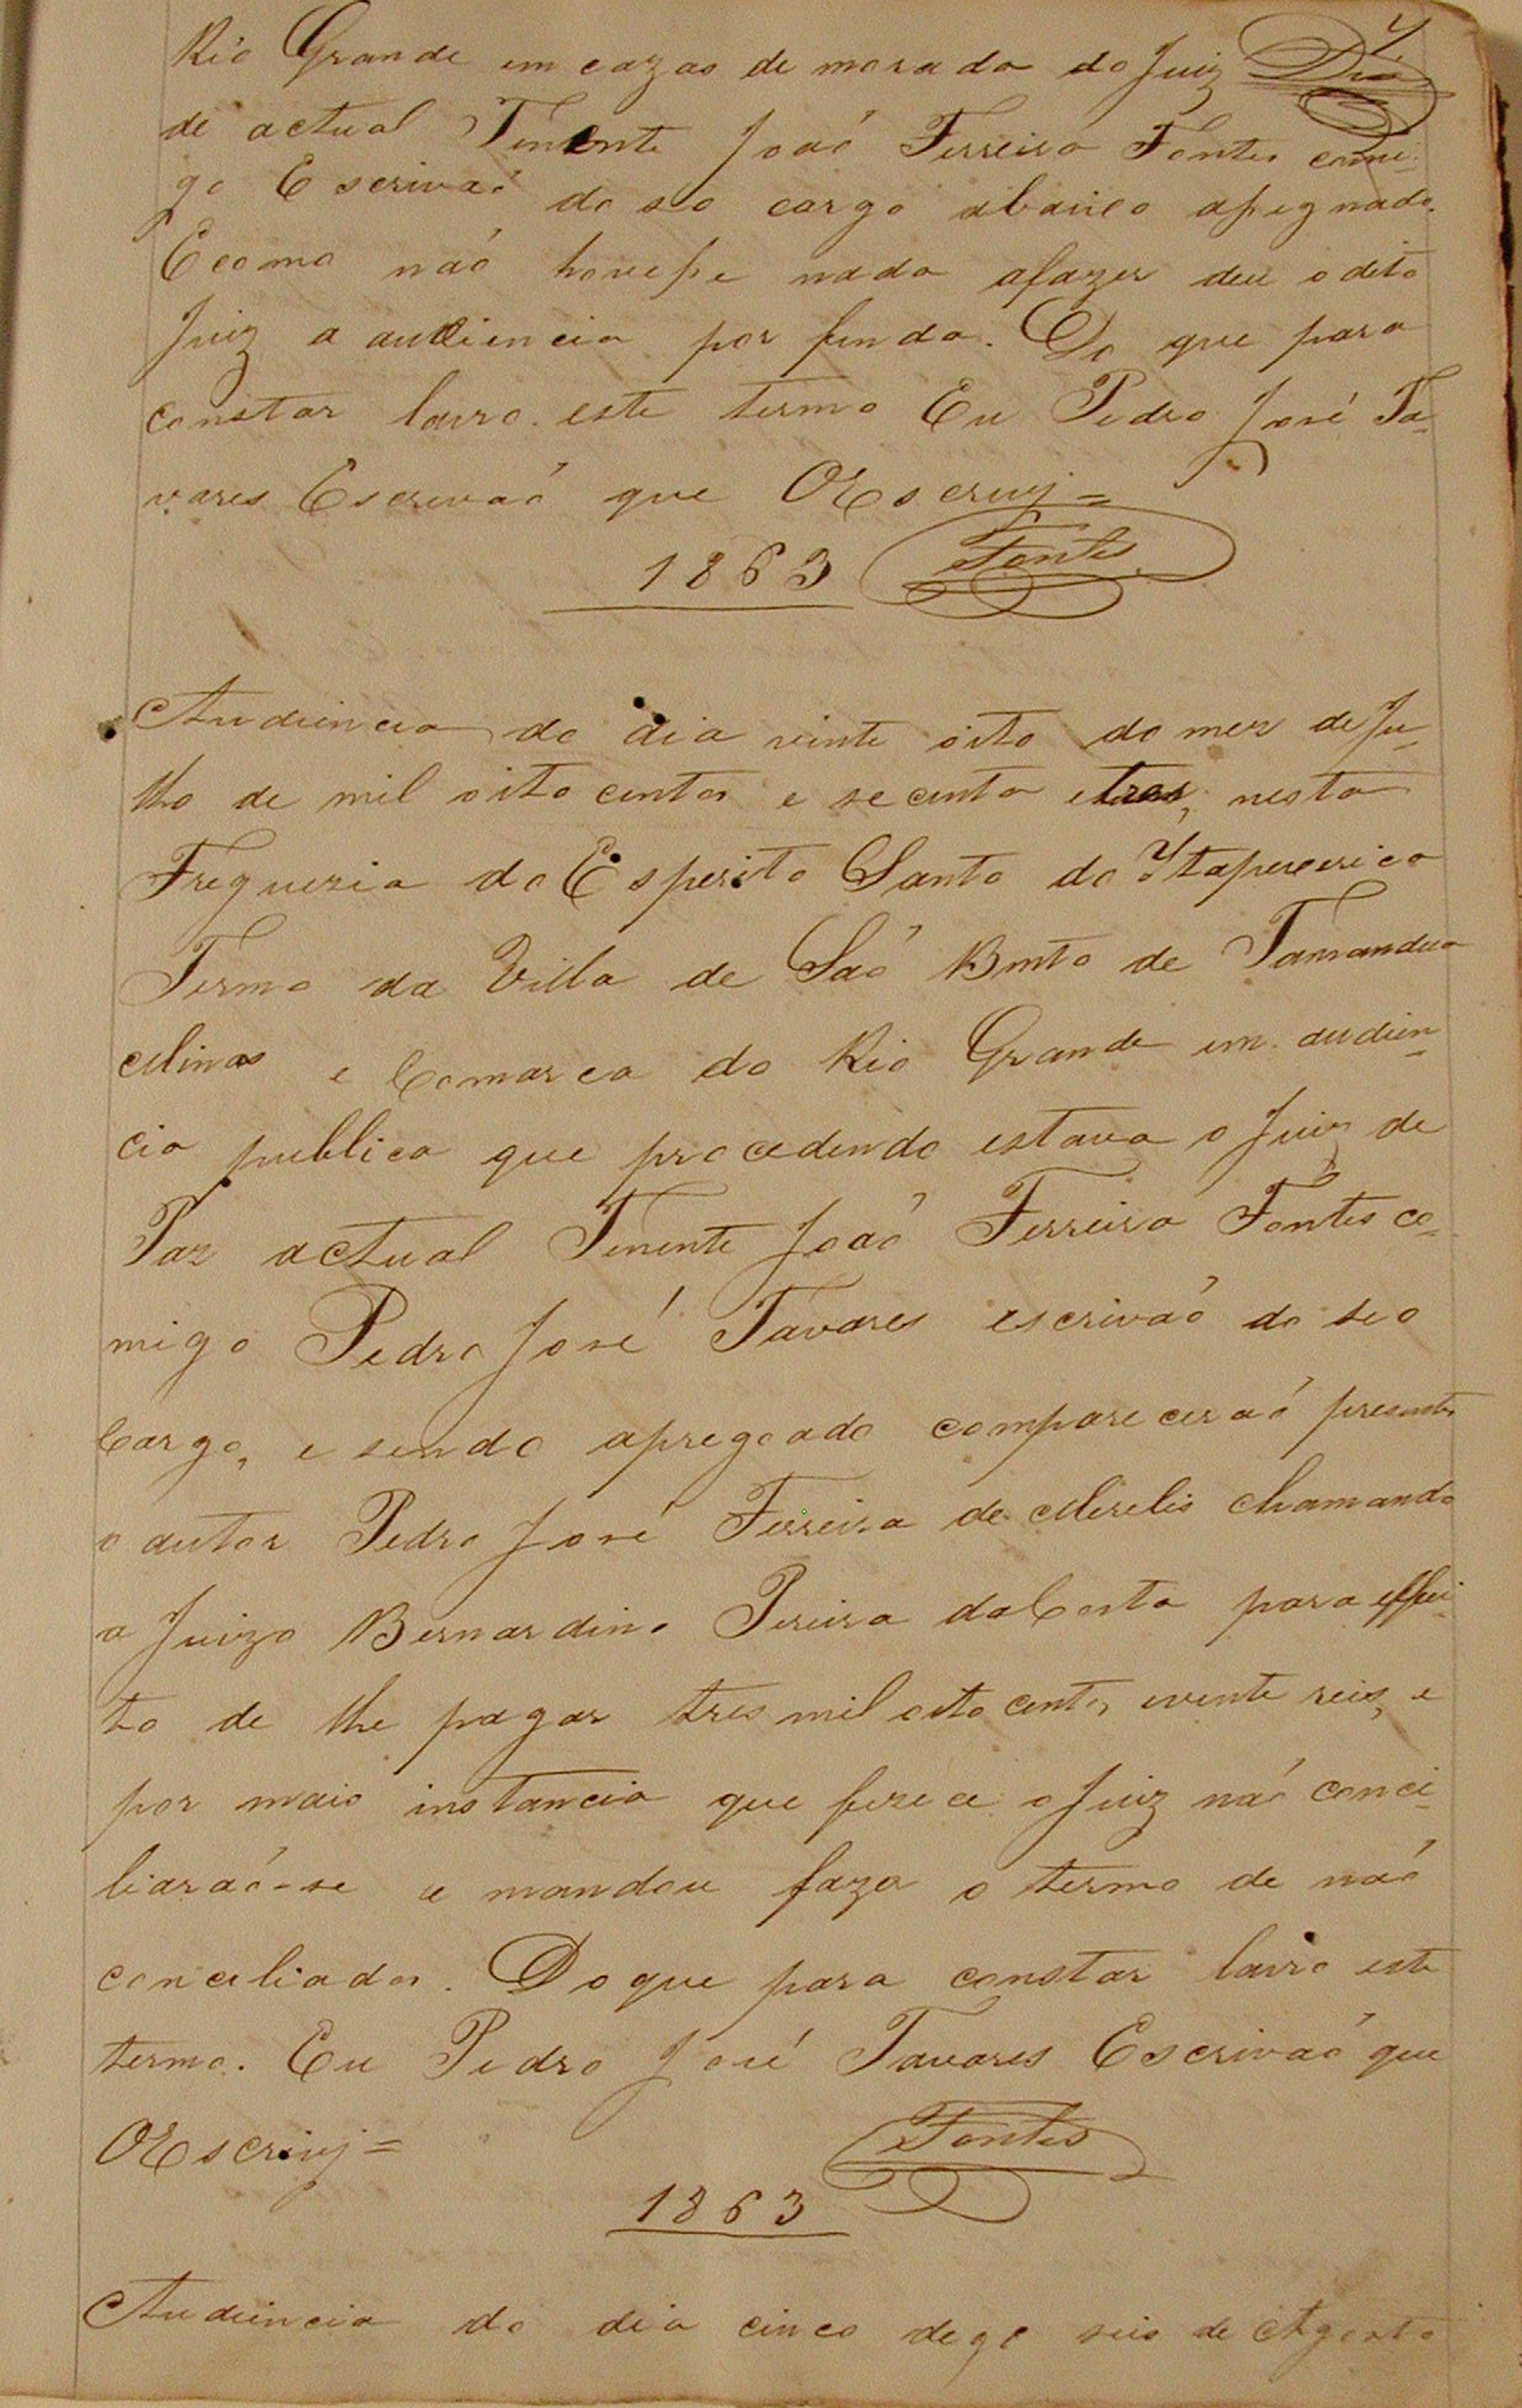 4
Rio Grande em cazas de morada do Juiz
de actual Tenente Joaõ Ferreira Fontes comi-
go Escrivaõ do seo cargo abaixo assignado.
E como naõ houvesse nada afazer deu o dito
Juiz a audiencia por finda. Do que para
constar lavro este termo Eu Pedro José Ta-
vares Escrivaõ que OEscrivj =
1863 Fontes
Audiencia do dia vinte oito do mez de Ju-
lho de mil oito centos e secenta e tres, nesta
Freguezia do Esperito Santo do Itapecerica
Termo da Villa de Saõ Bento de Tamandua
Minas e Comarca do Rio Grande em audien-
cia publica que procedendo estava o Juiz de
Paz actual Tenente Joaõ Ferreira Fontes co-
migo Pedro José Tavares escrivaõ do seo
Cargo, e sendo apregoado compareceraõ presentes
o autor Pedro José Ferreira de Mirelis chamando
a Juizo Bernardino Pereira da Costa para effei-
to de lhe pagar tres mil oito centos evente reis, e
por mais instancia que fizece o Juiz naõ conci-
liaraõ-se e mandou fazer o termo de naõ
conciliados. Do que para constar lavro este
termo. Eu Pedro José Tavares Escrivaõ que
OEscrivj = Fontes
1863
Audiencia do dia cinco digo seis de Agosto